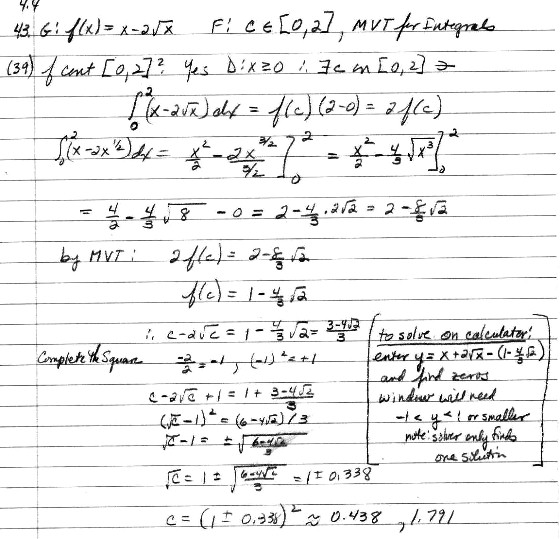 4.4
43. G: f(x) = x-2√x F: c ∈ [0,2], MVT for Integrals
(39) f cont [0,2]? Yes D: x≥0 ∴ ∃ c in [0,2] ∋
∫₀² (x-2√x) dx = f(c)(2-0) = 2f(c)
∫₀² (x-2x^½) dx = x²/2 - 2x^(3/2)/(3/2) ]₀² = x²/2 - 4/3 √x³ ]₀²
= 4/2 - 4/3 √8 - 0 = 2 - 4/3 · 2√2 = 2 - 8/3 √2
by MVT: 2f(c) = 2 - 8/3 √2
f(c) = 1 - 4/3 √2
∴ c - 2√c = 1 - 4/3 √2 = (3-4√2)/3
Complete the Square -2/2 = -1, (-1)² = +1
c - 2√c + 1 = 1 + (3-4√2)/3
(√c - 1)² = (6-4√2)/3
√c - 1 = ± √((6-4√2)/3)
√c = 1 ± √((6-4√2)/3) = 1 ± 0.338
c = (1 ± 0.338)² ≈ 0.438, 1.791
to solve on calculator:
enter y = x+2√x - (1-4/3√2)
and find zeros
window will need
-1 < y < 1 or smaller
note: solver only finds
one solution